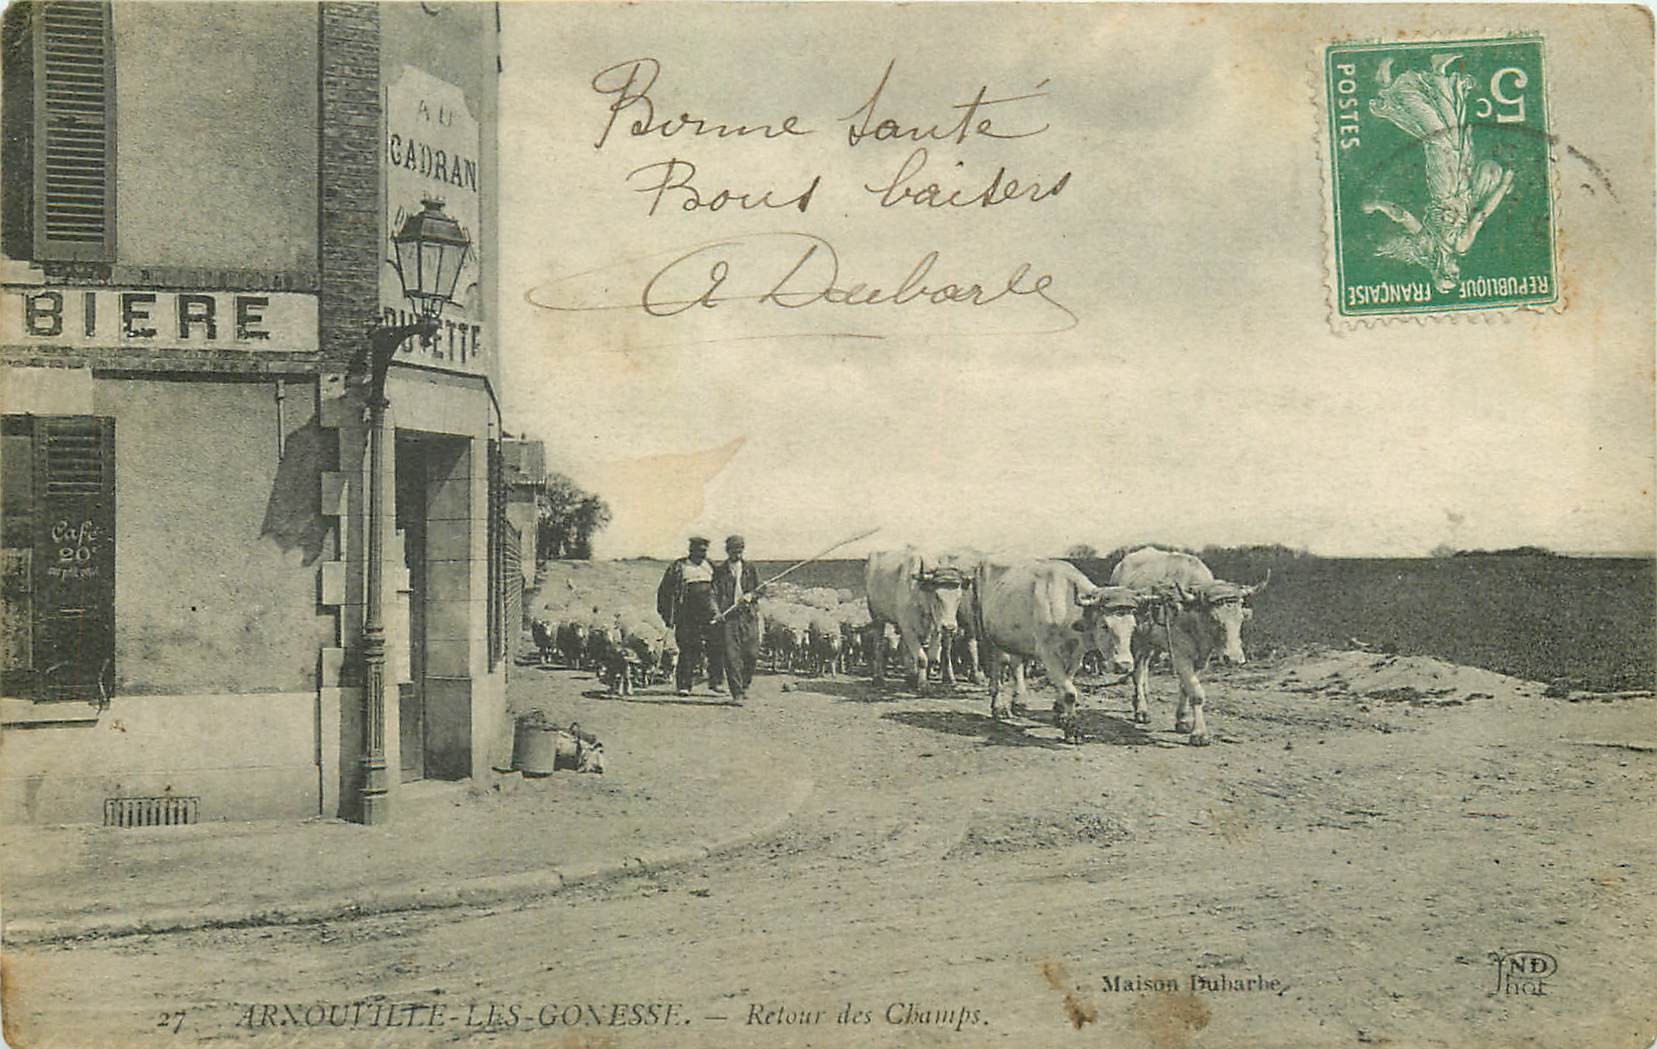 AU
CADRAN
BIERE
BUVETTE
Café
20c
Bonne Santé
Bons baisers
A Dubarle
5c
POSTES
REPUBLIQUE FRANÇAISE
Maison Dubarbe
ND
Phot
27 ARNOUVILLE-LES-GONESSE. — Retour des Champs.